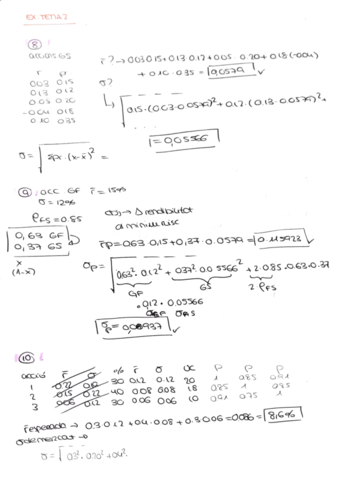 EX. TEMA 2
⑧
acciones GS
r p
0'03 0'15
0'13 0'12
0'05 0'20
-0'04 0'18
0'10 0'35
r̄? → 0'03·0'15+0'13·0'12+0'05·0'20+0'18·(-0'04)
+0'10·0'35= 0'0579 ✓
σ?
↳ √0'15·(0'03-0'0579)²+0'12·(0'13-0'0579)²+
...
= 0'05566
σ = √Σpr·(x-x̄)² =
⑨ : acc GF r̄ = 15%
σ = 12%
ρFS = 0.85
0,63 GF
0,37 GS
x
(1-x)
a minim risc
r̄p=0'63·0'15+0'37·0'0579= 0'115923 ✓
σp= √0'63²·0'12²+0'37²·0'05566²+2·0'85·0'63·0'37
GF GS 2 ρFS
·0'12·0'05566
σGF σGS
σp= 0'08937 ✓
⑩
acció r̄ σ % r̄ σ UC ρ ρ ρ
1 0'22 0'12 30 0'12 0'12 20 1 0'85 0'91
2 0'15 0'22 40 0'08 0'08 18 0'85 1 0'75
3 0'06 0'12 30 0'06 0'06 10 0'91 0'75 1
r̄esperada → 0'3·0'12+0'4·0'08+0'3·0'06=0'086= 8'6% ✓